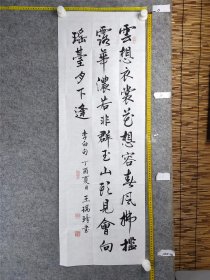 雲想衣裳花想容春風拂檻
露華濃若非群玉山頭見會向
瑶臺月下逢
李白句丁酉夏月王炳詩書